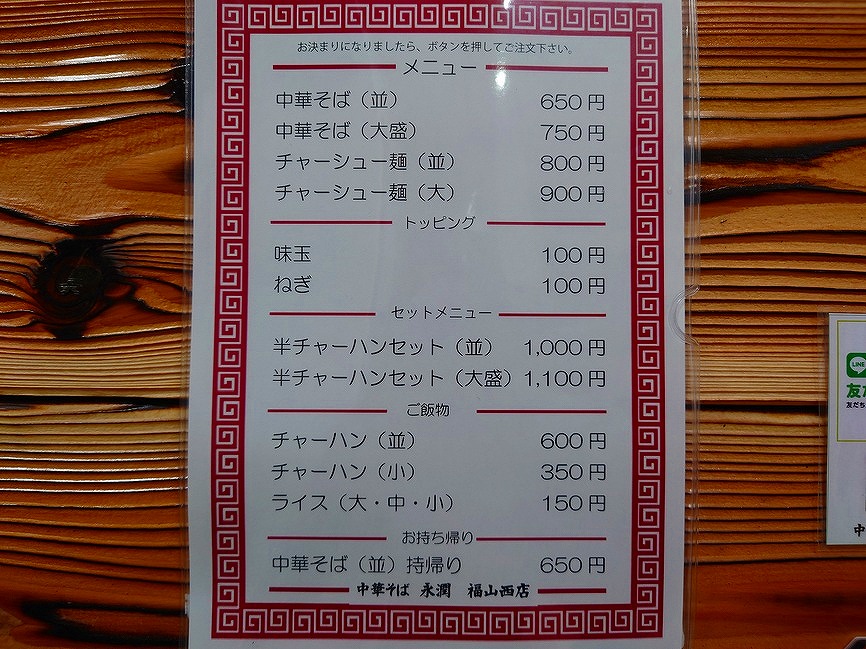 お決まりになりましたら、ボタンを押してご注文下さい。
メニュー
中華そば（並） 650円
中華そば（大盛） 750円
チャーシュー麺（並） 800円
チャーシュー麺（大） 900円
トッピング
味玉 100円
ねぎ 100円
セットメニュー
半チャーハンセット（並） 1,000円
半チャーハンセット（大盛） 1,100円
ご飯物
チャーハン（並） 600円
チャーハン（小） 350円
ライス（大・中・小） 150円
お持ち帰り
中華そば（並）持帰り 650円
中華そば 永潤 福山西店
LINE
友だ
友だち
中